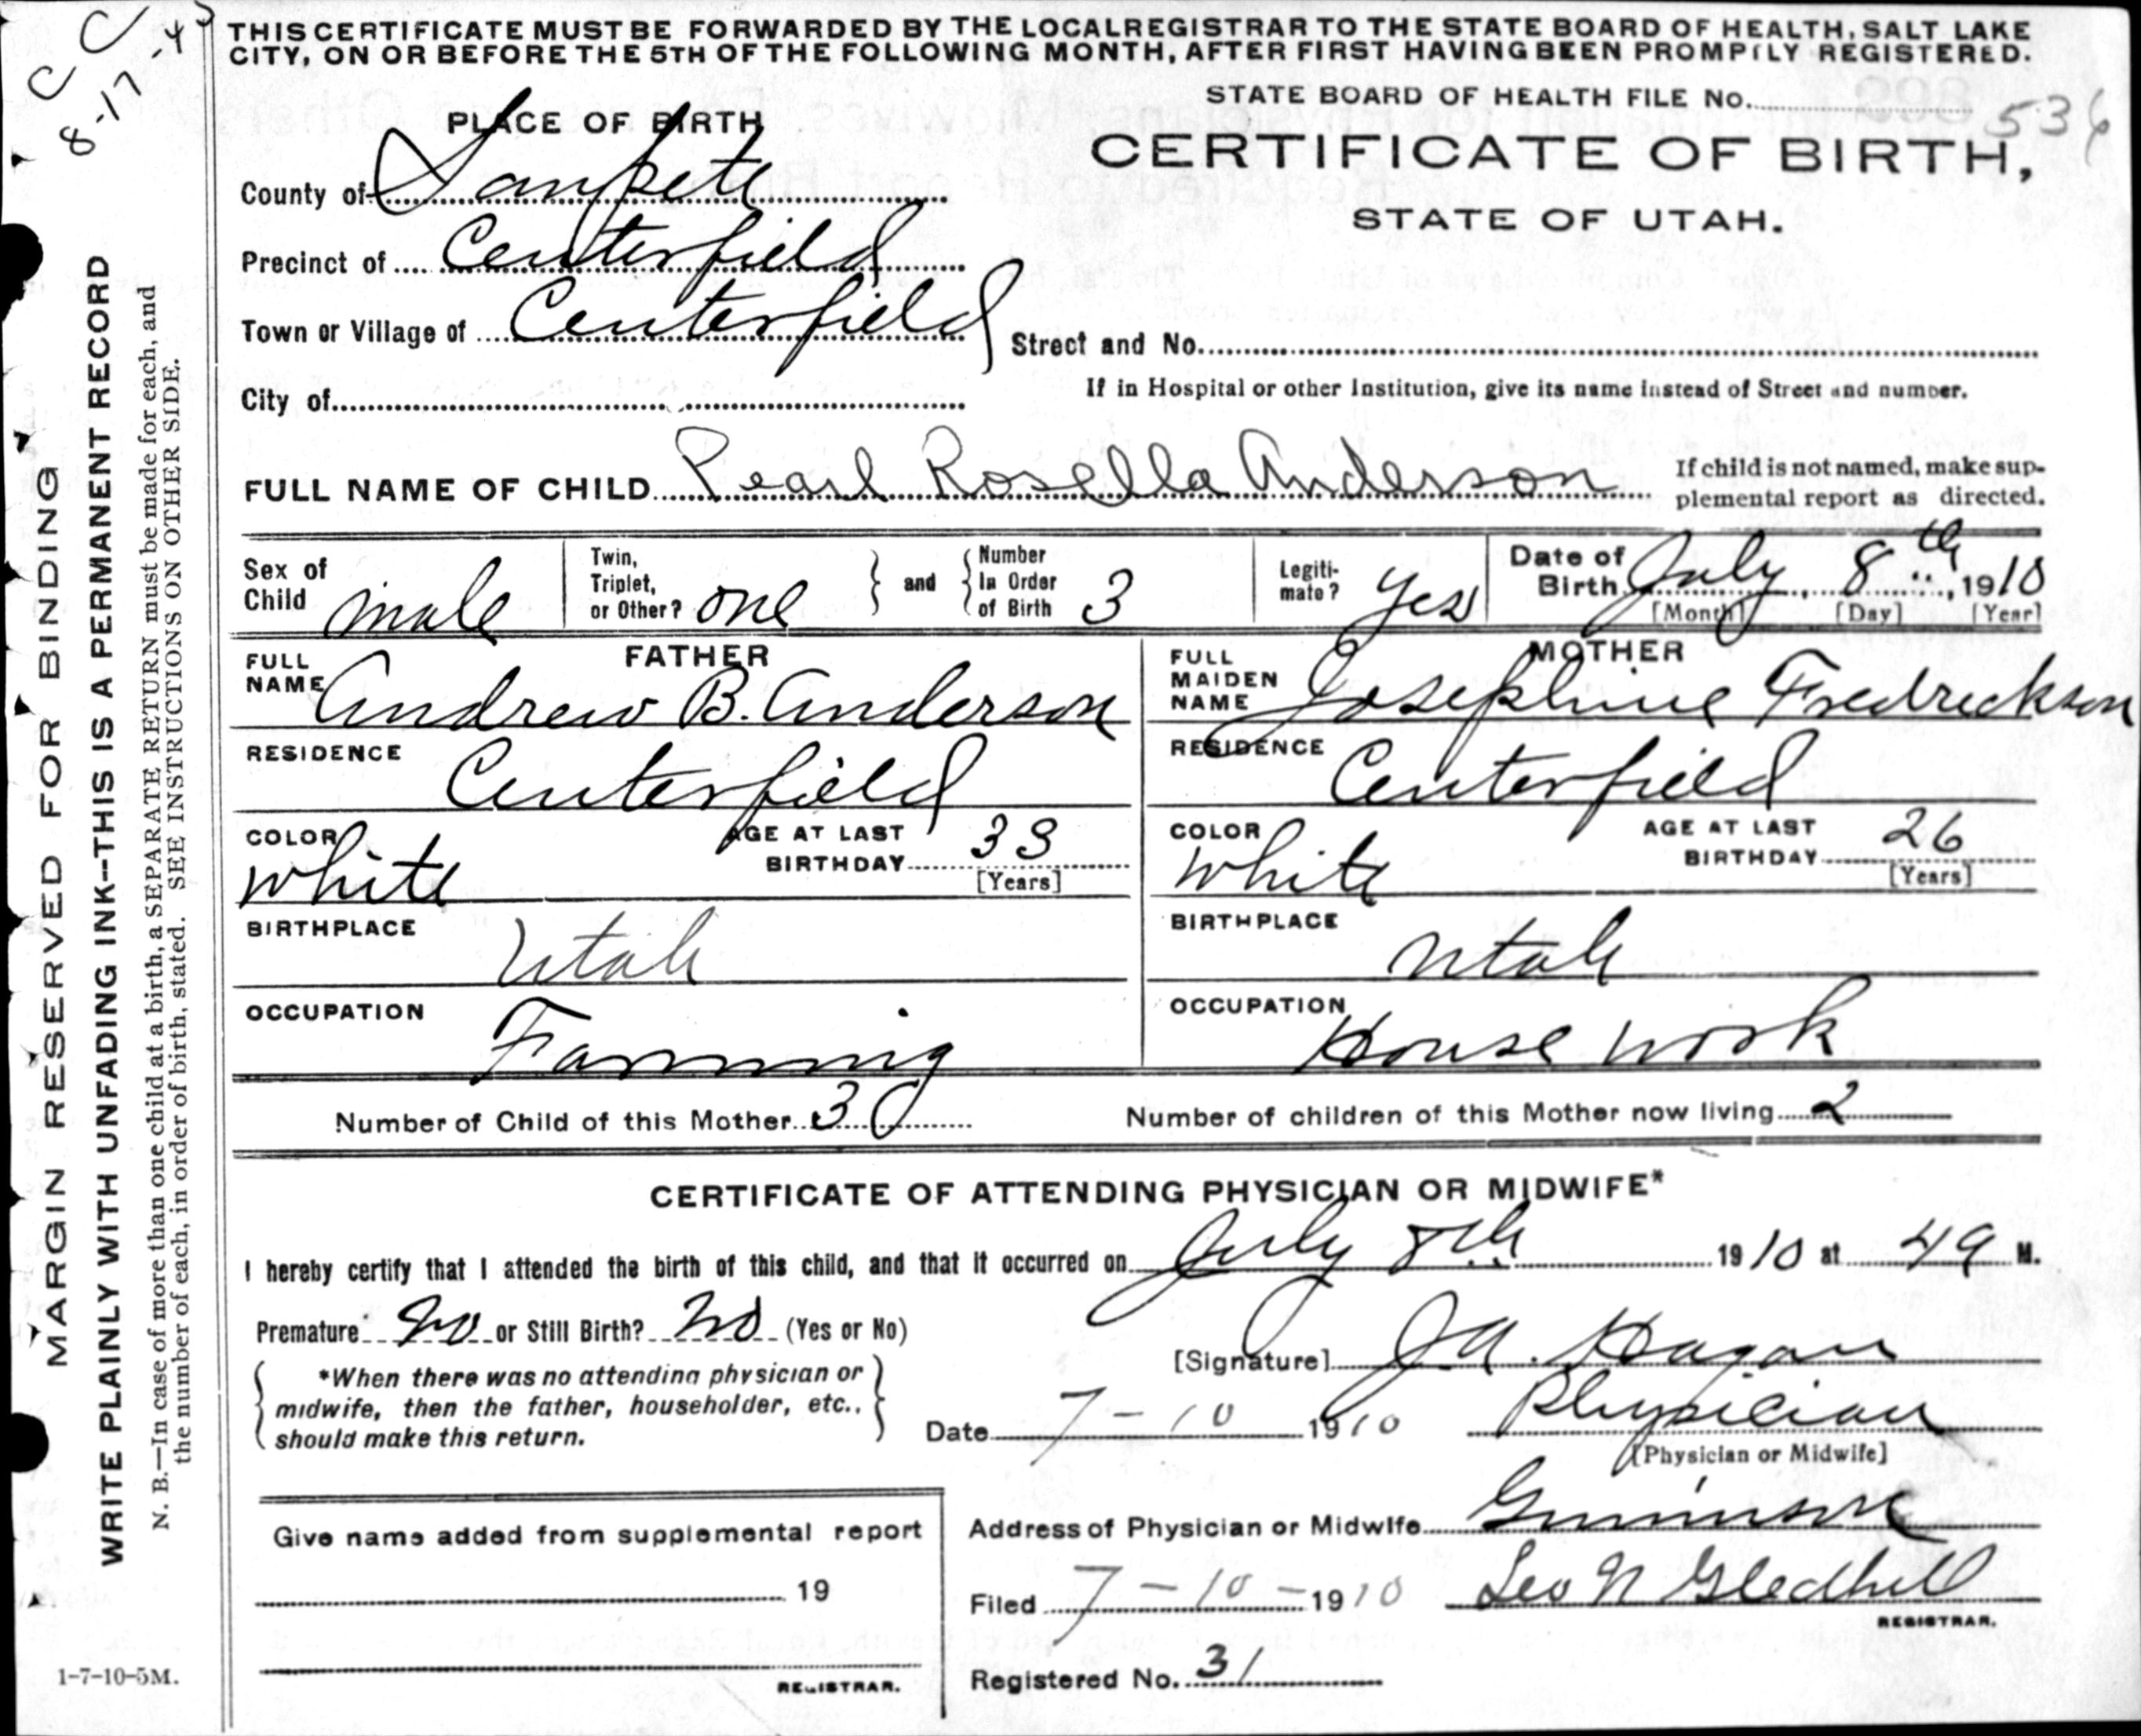 C C
8-17-45
THIS CERTIFICATE MUST BE FORWARDED BY THE LOCAL REGISTRAR TO THE STATE BOARD OF HEALTH, SALT LAKE
CITY, ON OR BEFORE THE 5TH OF THE FOLLOWING MONTH, AFTER FIRST HAVING BEEN PROMPTLY REGISTERED.
STATE BOARD OF HEALTH FILE No. 536
CERTIFICATE OF BIRTH,
STATE OF UTAH.
PLACE OF BIRTH
County of Sanpete
Precinct of Centerfield
Town or Village of Centerfield
Street and No.
City of
If in Hospital or other Institution, give its name instead of Street and number.
FULL NAME OF CHILD Pearl Rosella Anderson
If child is not named, make sup-
plemental report as directed.
Sex of Child male
Twin, Triplet, or Other? one
and
Number In Order of Birth 3
Legiti-
mate? Yes
Date of Birth July 8th, 1910
[Month] [Day] [Year]
FATHER
FULL NAME Andrew B. Anderson
RESIDENCE Centerfield
COLOR white
AGE AT LAST BIRTHDAY 33
[Years]
BIRTHPLACE Utah
OCCUPATION Farming
MOTHER
FULL MAIDEN NAME Josephine Fredrickson
RESIDENCE Centerfield
COLOR White
AGE AT LAST BIRTHDAY 26
[Years]
BIRTHPLACE Utah
OCCUPATION House work
Number of Child of this Mother 3
Number of children of this Mother now living 2
CERTIFICATE OF ATTENDING PHYSICIAN OR MIDWIFE*
I hereby certify that I attended the birth of this child, and that it occurred on July 8th 1910 at 4 a M.
Premature no or Still Birth? no (Yes or No)
*When there was no attending physician or
midwife, then the father, householder, etc.,
should make this return.
[Signature] J.A. Hagan
Date 7-10 1910 Physician
[Physician or Midwife]
Give name added from supplemental report
19
REGISTRAR.
Address of Physician or Midwife Gunnison
Filed 7-10-1910 Leo N Gledhill
REGISTRAR.
Registered No. 31
MARGIN RESERVED FOR BINDING
WRITE PLAINLY WITH UNFADING INK--THIS IS A PERMANENT RECORD
N. B.—In case of more than one child at a birth, a SEPARATE RETURN must be made for each, and
the number of each, in order of birth, stated. SEE INSTRUCTIONS ON OTHER SIDE.
1-7-10-5M.